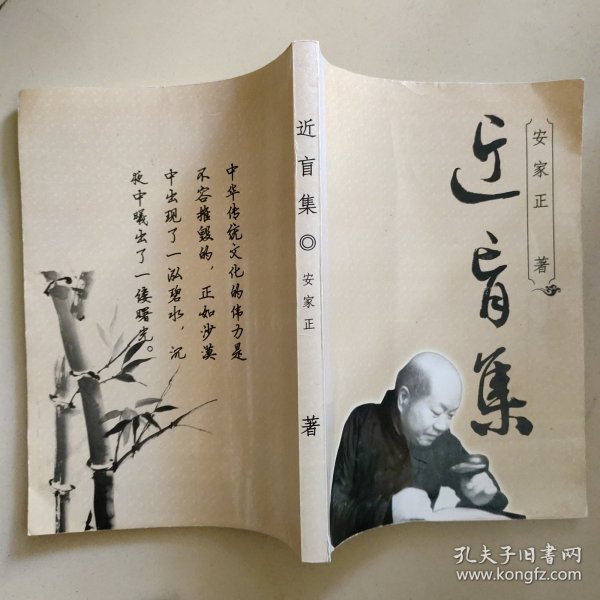 中华传统文化的伟力是
不容摧毁的，正如沙漠
中出现了一泓碧水，沉
夜中曦出了一偻曙光。
近盲集◎安家正 著
近盲集
安家正 著
孔夫子旧书网
www.kongfz.com